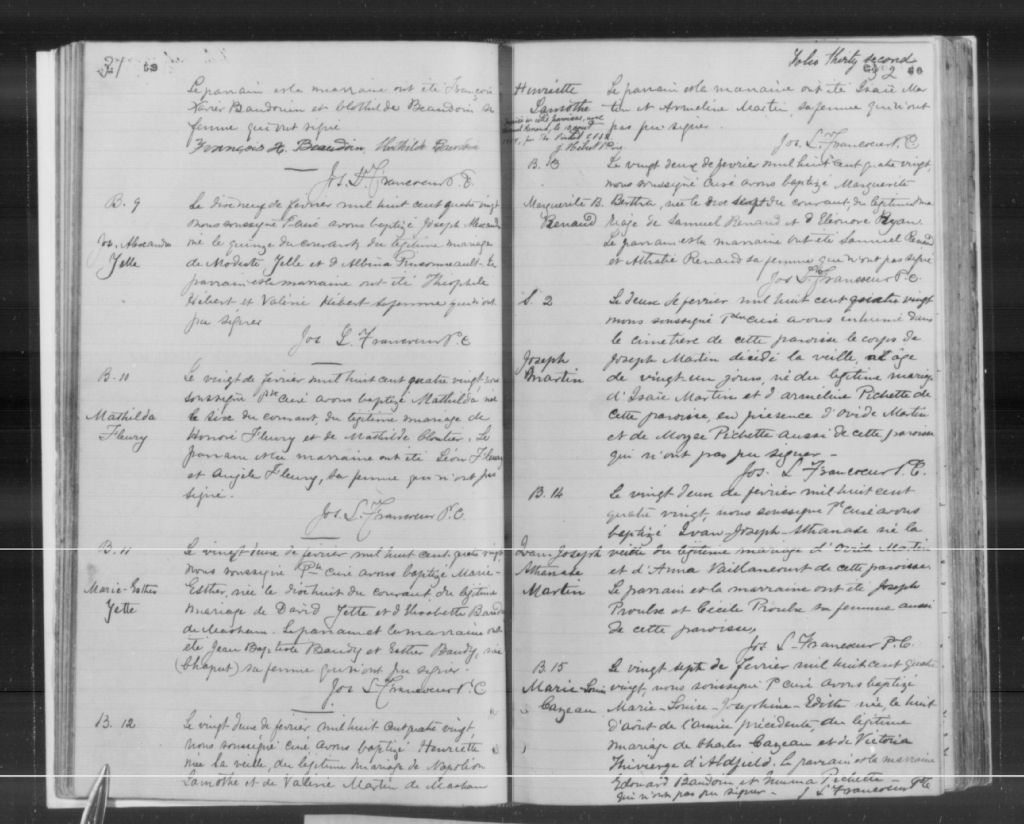 27 59
Le parrain et la marraine ont été François
Xavier Baudoin et Clothilde Beaudoin sa
femme qui ont signé
François X. Beaudoin, Clothilde Beaudoin
Jos. L. Francoeur P.C.
B. 9
Jos. Alexandre
Jette
Le dix neuf de février mil huit cent quatre vingt
nous soussigné curé avons baptizé Joseph Alexandre
né le quinze du courant, du légitime mariage
de Modeste Jette et d'Albina Pinsonneault. Le
parrain et la marraine ont été Théophile
Hébert et Valérie Hébert sa femme qui n'ont
pu signer
Jos L. Francoeur P.C
B. 10
Mathilda
Fleury
Le vingt de février mil huit cent quatre vingt, nous
soussigné Ptre curé avons baptizé Mathilda née
le six du courant, du légitime mariage de
Honoré Fleury et de Mathilde Cloutier. Le
parrain et la marraine ont été Léon Fleury
et Angèle Fleury, sa femme qui n'ont pas
signé.
Jos. L. Francoeur P.C.
B. 11
Marie-Esther
Jette
Le vingt deux de février mil huit cent quatre vingt
nous soussigné Ptre curé avons baptizé Marie-
Esther, née le dix huit du courant, du légitime
mariage de David Jette et d'Elisabeth Baudy
de Masham. Le parrain et la marraine ont
été Jean Baptiste Baudy et Esther Baudy, née
(Chaput) sa femme qui n'ont pu signer.
Jos L. Francoeur P.C
B. 12
Le vingt deux de février mil huit cent quatre vingt,
nous soussigné curé avons baptizé Henriette
née la veille, du légitime mariage de Napoléon
Lamothe et de Valérie Martin de Masham
Folio thirty second
32 60
Henriette
Lamothe
Le parrain et la marraine ont été Isaïe Mar
tin et Armeline Martin, sa femme qui n'ont
pas pu signer.
Jos. L. Francoeur, P.C
B. 13
Marguerite B.
Renaud
Le vingt deux de février mil huit cent quatre vingt,
nous soussigné curé avons baptizé Marguerite
Bertha, née le dix sept du courant, du légitime ma
riage de Samuel Renaud et d'Eléonore Ryan
Le parrain et la marraine ont été Samuel Renaud
et Athalie Renaud sa femme qui n'ont pas signé
Jos L. Francoeur P.C.
S. 2
Joseph
Martin
Le deux de février mil huit cent quatre vingt
nous soussigné Ptre curé avons inhumé dans
le cimetière de cette paroisse le corps de
Joseph Martin décédé la veille, à l'âge
de vingt-un jours, né du légitime mariage
d'Isaïe Martin et d'Armeline Pichette de
cette paroisse, en présence d'Ovide Martin
et de Moyse Pichette aussi de cette paroisse
qui n'ont pas pu signer -
Jos. L. Francoeur P.C.
B. 14
Ivan Joseph
Athanase
Martin
Le vingt deux de février mil huit cent
quatre vingt, nous soussigné Ptre curé avons
baptizé Ivan Joseph Athanase né la
veille du légitime mariage d'Ovide Martin
et d'Anna Vaillancourt de cette paroisse.
Le parrain et la marraine ont été Joseph
Proulx et Cécile Proulx sa femme aussi
de cette paroisse,
Jos L. Francoeur P.C.
B. 15
Marie-Louise
Cazeau
Le vingt sept de février mil huit cent quatre
vingt, nous soussigné P curé avons baptizé
Marie-Louise-Josephine-Edith née, le huit
d'août de l'année précédente, du légitime
mariage de Charles Cazeau et de Victoria
Thivierge d'Aldfield. Le parrain et la marraine
Edouard Baudoin et Emma Pichette -
qui n'ont pas pu signer - J L. Francoeur Ptre